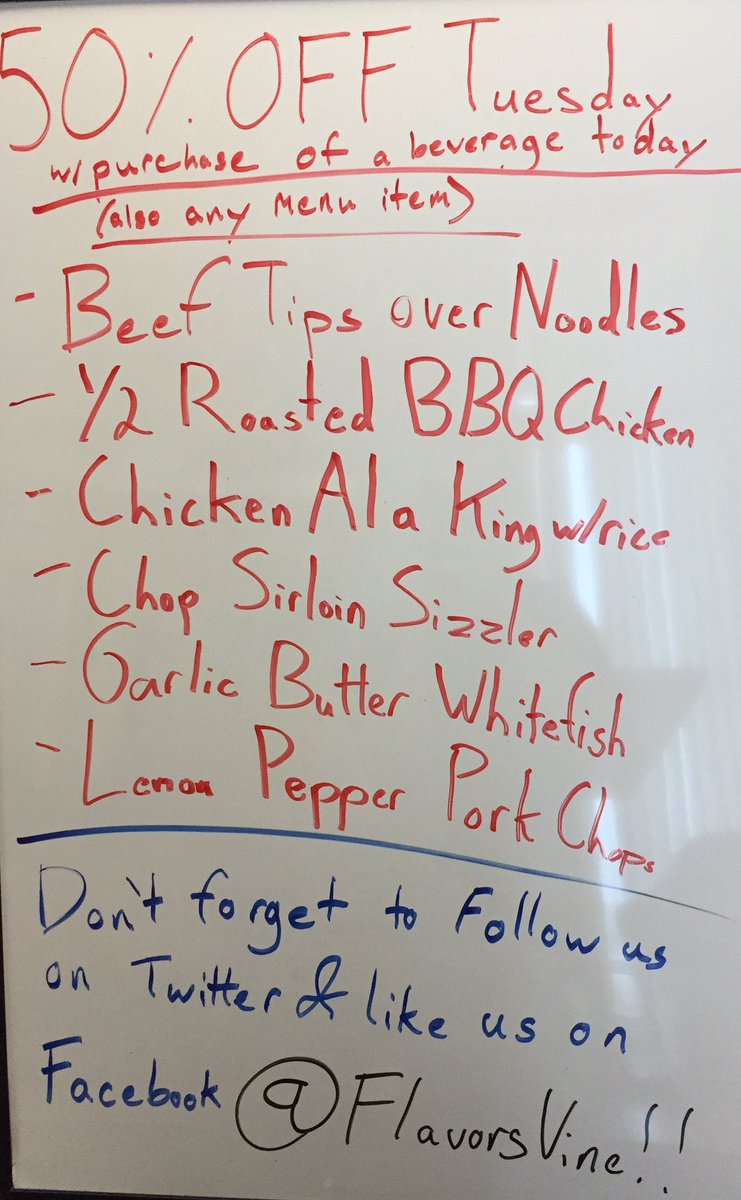 50% OFF Tuesday
w/purchase of a beverage today
(also any Menu item)
- Beef Tips over Noodles
- 1/2 Roasted BBQ Chicken
- Chicken Al a King w/rice
- Chop Sirloin Sizzler
- Garlic Butter Whitefish
- Lemon Pepper Pork Chops
Don't forget to Follow us
on Twitter & like us on
Facebook @FlavorsVine!!